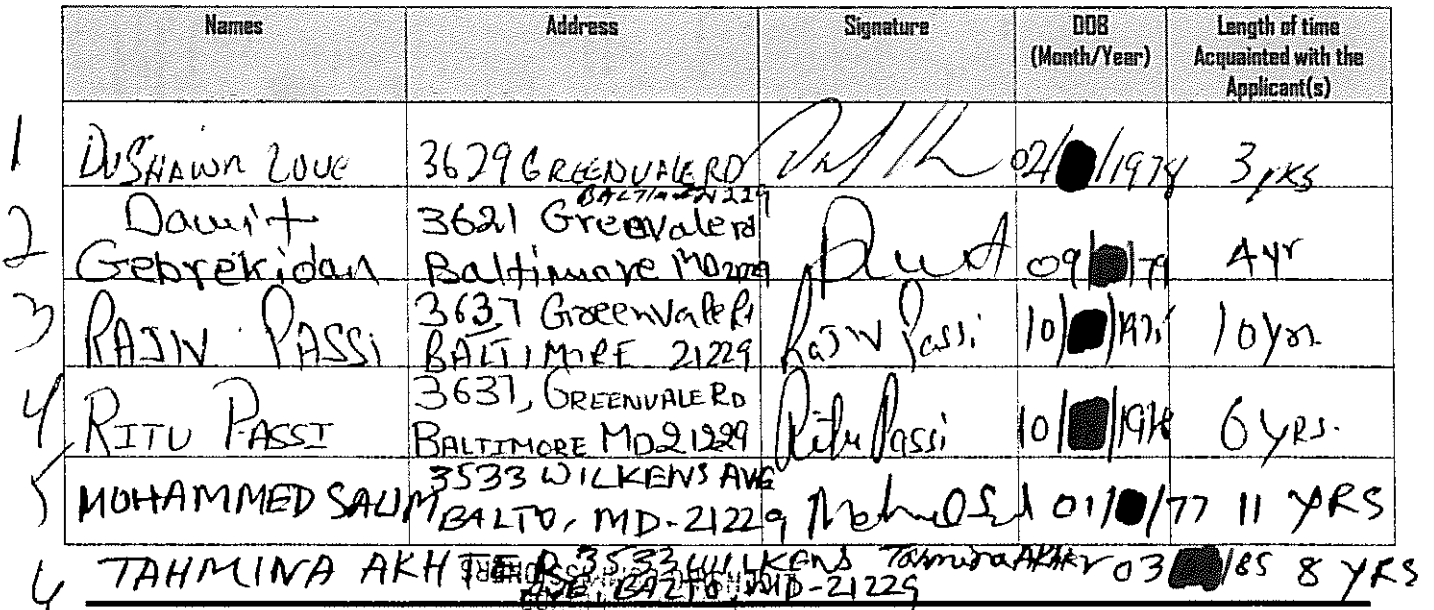 Names Address Signature DOB (Month/Year) Length of time Acquainted with the Applicant(s)
1 DUSHAWN LOVE 3629 GREENVALE RD 02/ /1978 3 YRS
21229
2 Dawit Gebrekidan 3621 Greenvale rd Baltimore MD 09/ /79 4 yr
3 RAJIV PASSI 3637 Greenvale Rd BALTIMORE 21229 Rajiv Passi 10/ / 10 yrs
4 RITU PASSI 3637, GREENVALE RD BALTIMORE MD 21229 Ritu Passi 10/ / 6 YRS.
5 MOHAMMED SALIM 3533 WILKENS AVE BALTO, MD-21229 01/ /77 11 YRS
6 TAHMINA AKHTER 3533 WILKENS AVE, BALTO, MD-21229 Tahmina Akhter 03 /85 8 YRS